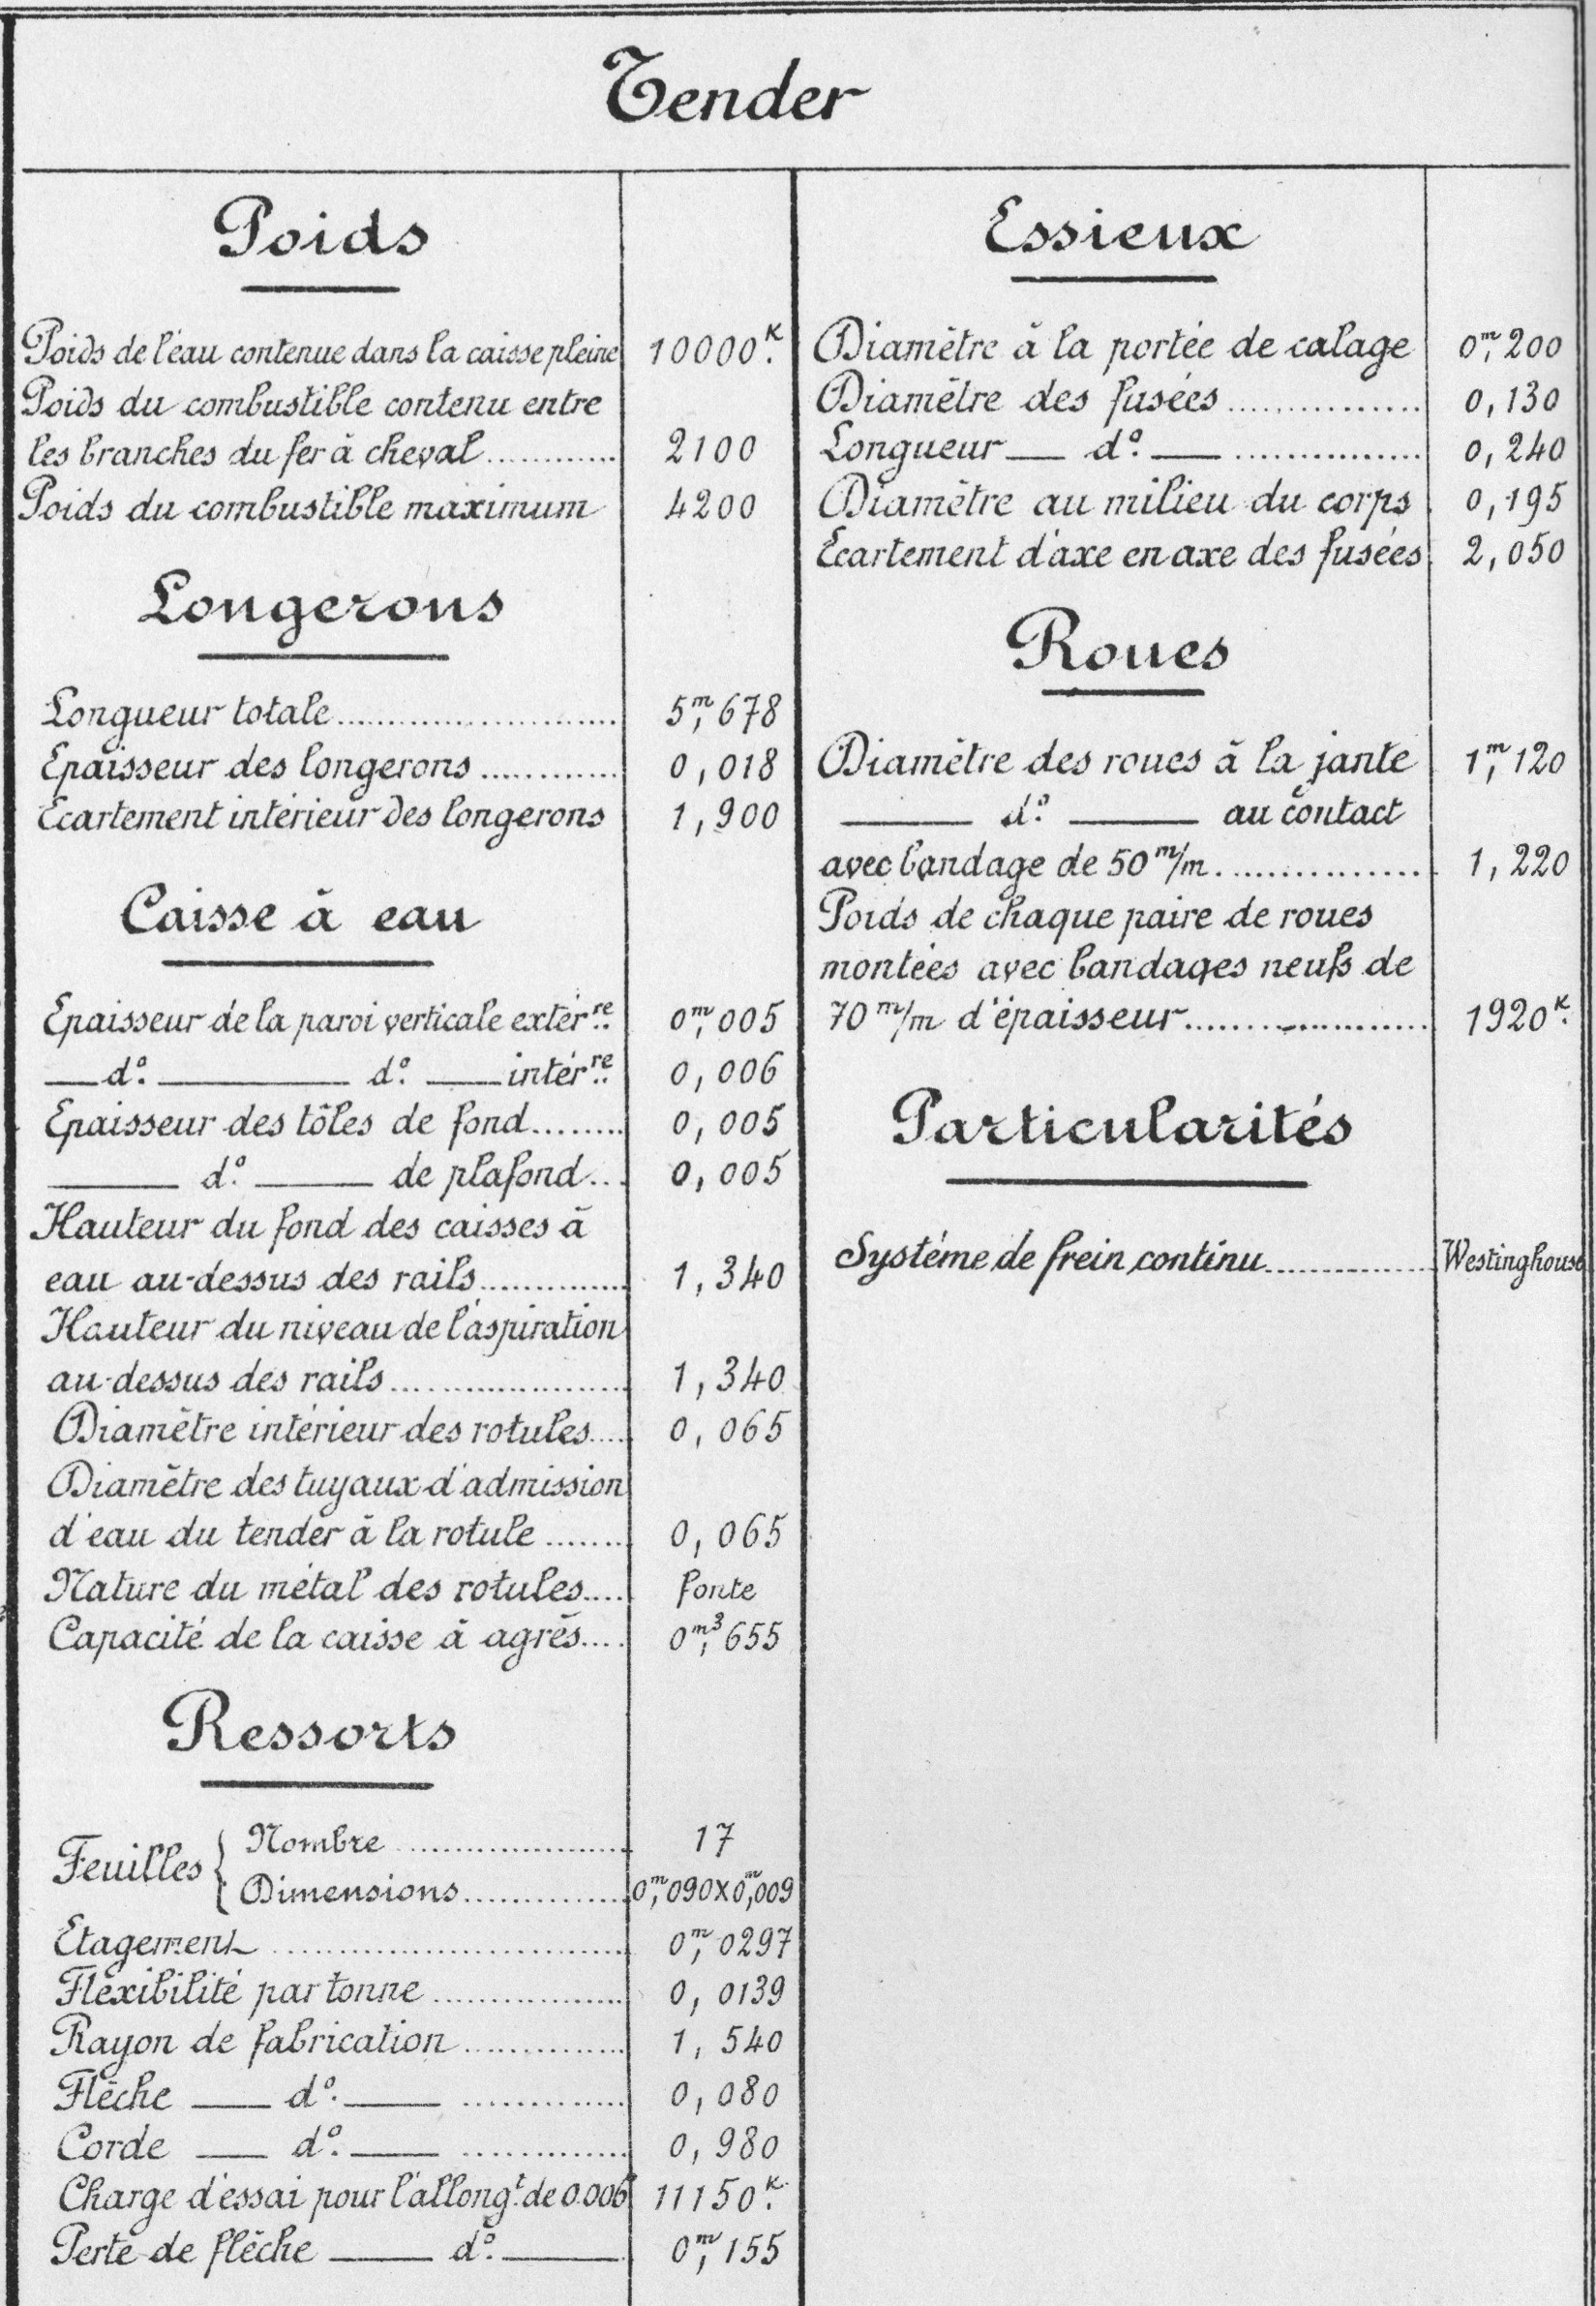 Tender
Poids
Poids de l'eau contenue dans la caisse pleine 10000K.
Poids du combustible contenu entre
les branches du fer à cheval............ 2100
Poids du combustible maximum 4200
Longerons
Longueur totale......................... 5m,678
Epaisseur des longerons............. 0,018
Ecartement intérieur des longerons 1,900
Caisse à eau
Epaisseur de la paroi verticale extérre. 0m,005
— do. ——— do. — intérre. 0,006
Epaisseur des tôles de fond........ 0,005
—— do. —— de plafond... 0,005
Hauteur du fond des caisses à
eau au-dessus des rails.............. 1,340
Hauteur du niveau de l'aspiration
au-dessus des rails...................... 1,340
Diamètre intérieur des rotules.... 0,065
Diamètre des tuyaux d'admission
d'eau du tender à la rotule........ 0,065
Nature du métal des rotules.... fonte
Capacité de la caisse à agrès.... 0m3,655
Ressorts
Feuilles { Nombre...................... 17
Dimensions............... 0m,090x0m,009
Etagement................................ 0m,0297
Fléxibilité par tonne................... 0,0139
Rayon de fabrication............... 1,540
Flèche — do. — ............... 0,080
Corde — do. — ............... 0,980
Charge d'essai pour l'allongt. de 0.006 11150K.
Perte de flèche —— do. —— 0m,155
Essieux
Diamètre à la portée de calage 0m,200
Diamètre des fusées................. 0,130
Longueur — do. — ................ 0,240
Diamètre au milieu du corps 0,195
Ecartement d'axe en axe des fusées 2,050
Roues
Diamètre des roues à la jante 1m,120
—— do. —— au contact
avec bandage de 50 m/m................. 1,220
Poids de chaque paire de roues
montées avec bandages neufs de
70 m/m d'épaisseur..................... 1920K.
Particularités
Système de frein continu............... Westinghouse